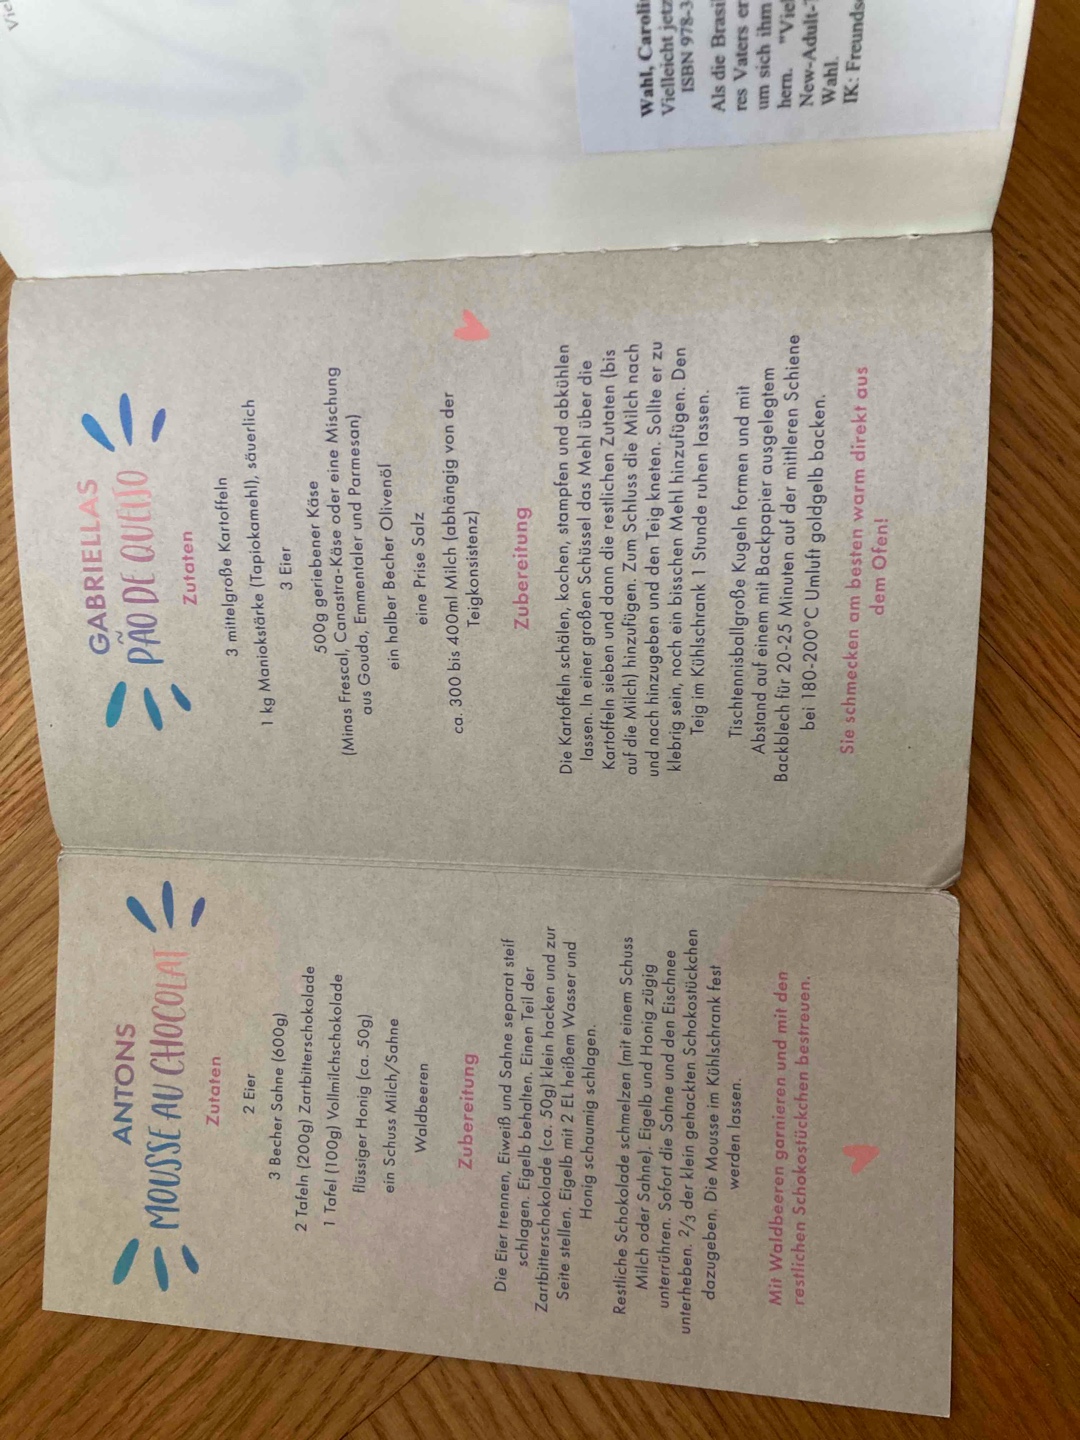 ANTONS
MOUSSE AU CHOCOLAT
Zutaten
2 Eier
3 Becher Sahne (600g)
2 Tafeln (200g) Zartbitterschokolade
1 Tafel (100g) Vollmilchschokolade
flüssiger Honig (ca. 50g)
ein Schuss Milch/Sahne
Waldbeeren
Zubereitung
Die Eier trennen, Eiweiß und Sahne separat steif
schlagen. Eigelb behalten. Einen Teil der
Zartbitterschokolade (ca. 50g) klein hacken und zur
Seite stellen. Eigelb mit 2 EL heißem Wasser und
Honig schaumig schlagen.
Restliche Schokolade schmelzen (mit einem Schuss
Milch oder Sahne). Eigelb und Honig zügig
unterrühren. Sofort die Sahne und den Eischnee
unterheben. 2/3 der klein gehackten Schokostückchen
dazugeben. Die Mousse im Kühlschrank fest
werden lassen.
Mit Waldbeeren garnieren und mit den
restlichen Schokostückchen bestreuen.
GABRIELLAS
PÃO DE QUEIJO
Zutaten
3 mittelgroße Kartoffeln
1 kg Maniokstärke (Tapiokamehl), säuerlich
3 Eier
500g geriebener Käse
(Minas Frescal, Canastra-Käse oder eine Mischung
aus Gouda, Emmentaler und Parmesan)
ein halber Becher Olivenöl
eine Prise Salz
ca. 300 bis 400ml Milch (abhängig von der
Teigkonsistenz)
Zubereitung
Die Kartoffeln schälen, kochen, stampfen und abkühlen
lassen. In einer großen Schüssel das Mehl über die
Kartoffeln sieben und dann die restlichen Zutaten (bis
auf die Milch) hinzufügen. Zum Schluss die Milch nach
und nach hinzugeben und den Teig kneten. Sollte er zu
klebrig sein, noch ein bisschen Mehl hinzufügen. Den
Teig im Kühlschrank 1 Stunde ruhen lassen.
Tischtennisballgroße Kugeln formen und mit
Abstand auf einem mit Backpapier ausgelegtem
Backblech für 20-25 Minuten auf der mittleren Schiene
bei 180-200°C Umluft goldgelb backen.
Sie schmecken am besten warm direkt aus
dem Ofen!
Wahl,
Vielleicht jetz
ISBN 978-3
Als die Brasil
res Vaters er
um sich ihm
hern. "Viel
New-Adult-
Wahl.
IK: Freunds